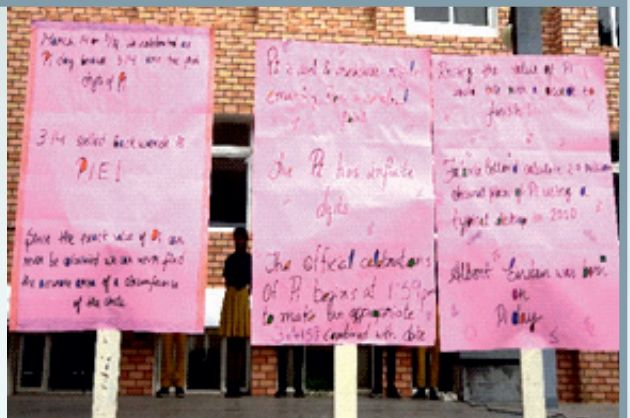 March 14 or 3/14 is celebrated as
Pi day because 3.14 are the first
digits of Pi
3.14 spelled backwards is
PIE!
Since the exact value of Pi can
never be calculated we can never find
the accurate area of a circumference
of the circle
Pi is used to measure
The Pi has infinite
digits
The offical celebrations
of Pi begins at 1:59pm
to make an appropriate
3.14159 combined with date
the value of Pi
would take with a decade to
finish!
calculate 2.9
of Pi using a
typical desktop in 2010
Albert Einstein was born
on
Pi day